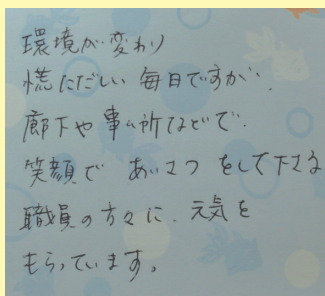 環境が変わり
慌ただしい毎日ですが、
廊下や事ム所などで、
笑顔で あいさつ をして下さる
職員の方々に、元気を
もらっています。